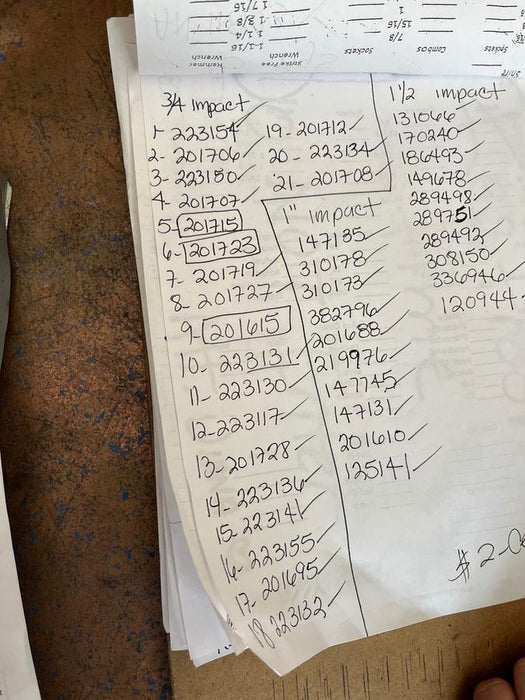 1 7/16
1 3/8
1-1/4
1-1/16
Wrench
Strike Free
Wrench
Hammer
15/16
7/8
Sockets
Combos
Sockets
3/4 impact
1- 223154
2- 201706
3- 223150
4- 201707
5- 201715
6- 201723
7- 201719
8- 201727
9- 201615
10- 223131
11- 223130
12- 223117
13- 201728
14- 223136
15- 223141
16- 223155
17- 201695
18 223132
19- 201712
20- 223134
21- 201708
1" impact
147135
310178
310173
382796
201688
219976
147745
147131
201610
125141
1 1/2 impact
131066
170240
186493
149678
289498
289751
289492
308150
336946
120944